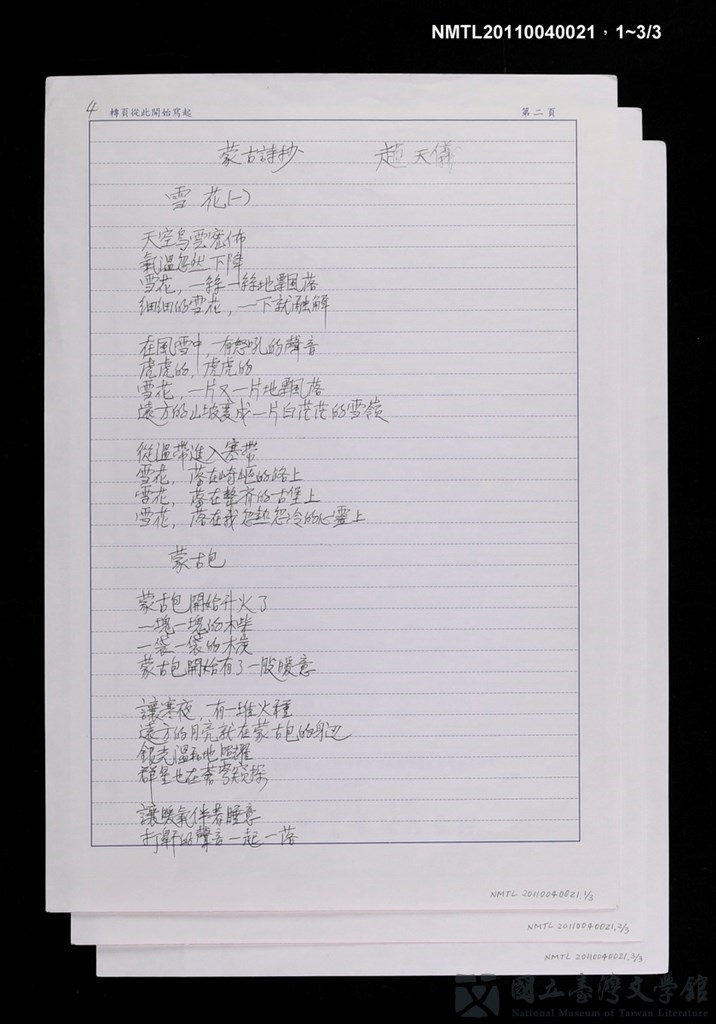 NMTL20110040021，1~3/3
4
轉頁從此開始寫起
第二頁
蒙古詩抄 趙天儀
雪花(一)
天空烏雲密佈
氣溫忽然下降
雪花，一絲一絲地飄落
細細的雪花，一下就融解
在風雪中，有怒吼的聲音
虎虎的，虎虎的
雪花，一片又一片地飄落
遠方的山坡變成一片白茫茫的雪嶺
從溫帶進入寒帶
雪花，落在崎嶇的路上
雪花，落在整齊的古堡上
雪花，落在我忽熱忽冷的心靈上
蒙古包
蒙古包開始升火了
一塊一塊的木柴
一袋一袋的木炭
蒙古包開始有了一股暖意
讓寒夜，有一堆火種
遠方的月亮就在蒙古包的身邊
銀亮溫和地照耀
群星也在雲霄窺探
讓暖氣伴著睡意
打鼾的聲音一起一落
NMTL 20110040021,1/3
NMTL 20110040021,2/3
NMTL 20110040021,3/3
國立臺灣文學館
National Museum of Taiwan Literature